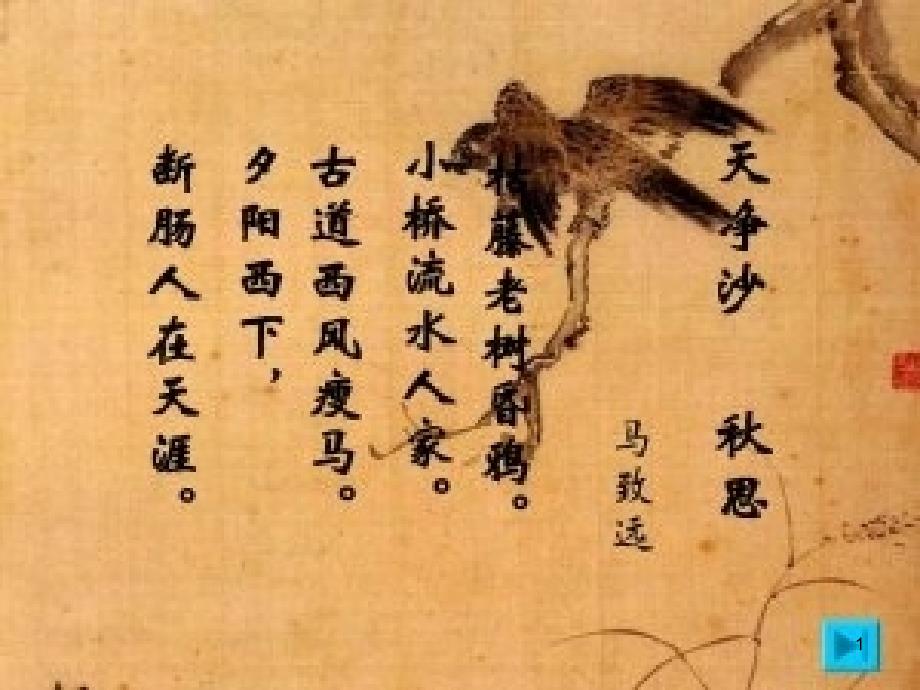 天净沙 秋思
马致远
枯藤老树昏鸦。
小桥流水人家。
古道西风瘦马。
夕阳西下，
断肠人在天涯。
1